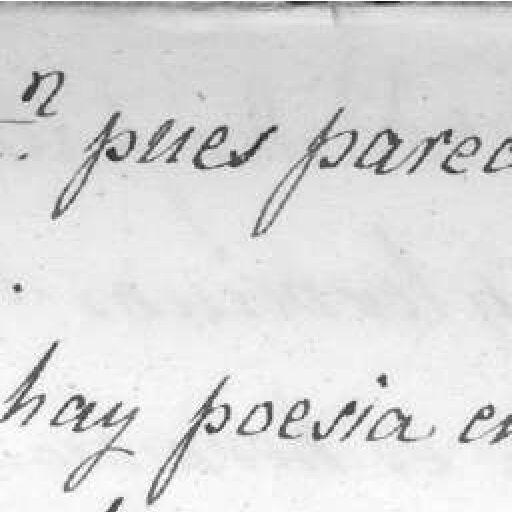 n pues parec
hay poesia en